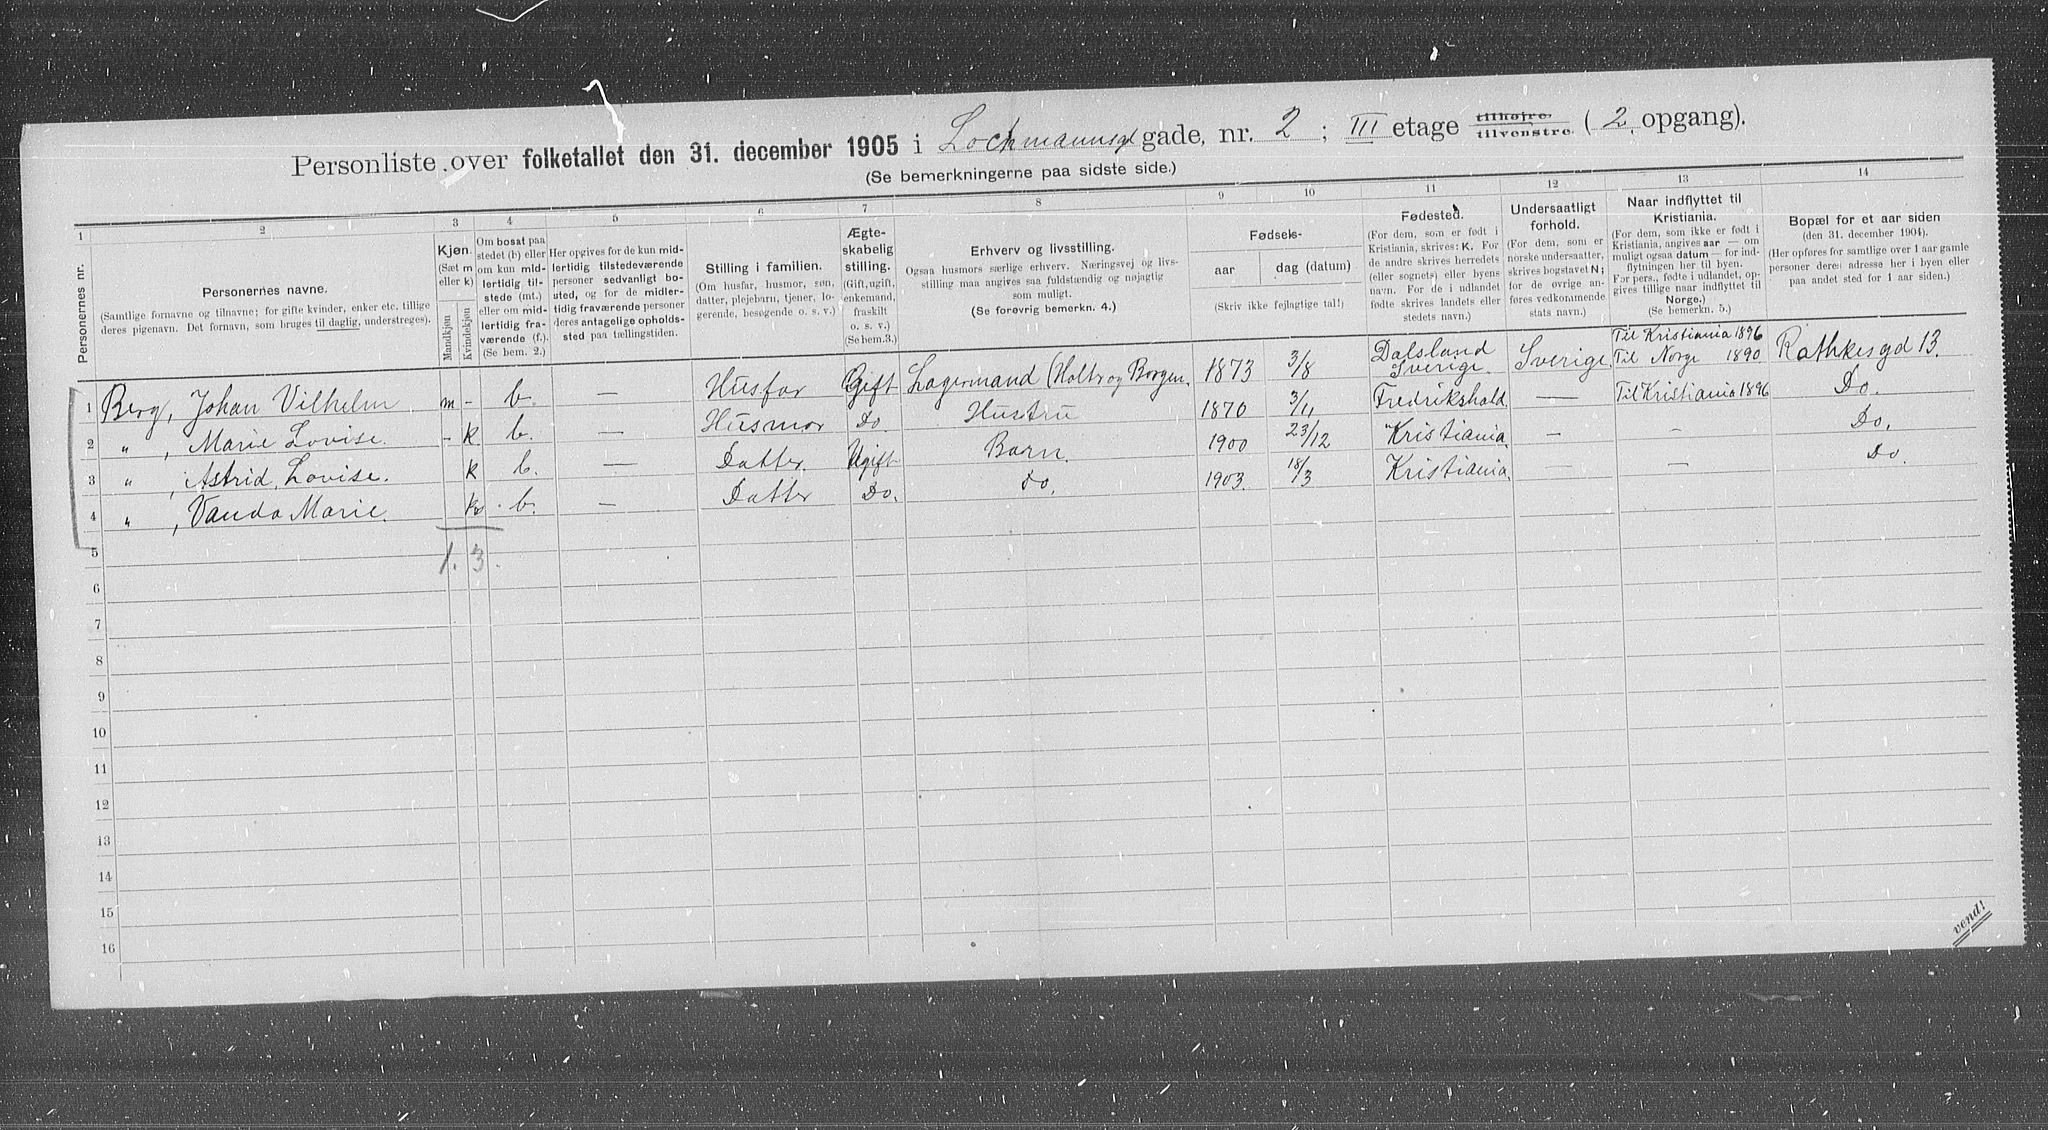 Personliste over folketallet den 31. december 1905 i Lochmannsgd gade, nr. 2 ; III etage tilhøire tilvenstre (2. opgang).
(Se bemerkningerne paa sidste side.)
1 2 3 4 5 6 7 8 9 10 11 12 13 14
Personernes nr.
Personernes navne.
(Samtlige fornavne og tilnavne; for gifte kvinder, enker etc. tillige
deres pigenavn. Det fornavn, som bruges til daglig, understreges).
Kjøn.
(Sæt m
eller k)
Mandkjøn
Kvindekjøn
Om bosat paa
stedet (b) eller
om kun mid-
lertidig til-
stede (mt.)
eller om mid-
lertidig fra-
værende (f.).
(Se bem. 2.)
Her opgives for de kun mid-
lertidig tilstedeværende
personer sedvanligt bo-
sted, og for de midler-
tidig fraværende personer
deres antagelige opholds-
sted paa tællingstiden.
Stilling i familien.
(Om husfar, husmor, søn,
datter, plejebarn, tjener, lo-
gerende, besøgende o. s. v.)
Ægte-
skabelig
stilling.
(Gift, ugift,
enkemand,
fraskilt
o. s. v.)
(Se bem.3.)
Erhverv og livsstilling.
Ogsaa husmors særlige erhverv. Næringsvej og livs-
stilling maa angives saa fuldstændig og nøjagtig
som muligt.
(Se forøvrig bemerkn. 4.)
Fødsels-
aar
dag (datum)
(Skriv ikke fejlagtige tal!)
Fødested.
(For dem, som er født i
Kristiania, skrives: K. For
de andre skrives herredets
(eller sognets) eller byens
navn. For de i udlandet
fødte skrives landets eller
stedets navn.)
Undersaatligt
forhold.
(For dem, som er
norske undersaatter,
skrives bogstavet N;
for de øvrige an-
føres vedkommende
stats navn.)
Naar indflyttet til
Kristiania.
(For dem, som ikke er født i
Kristiania, angives aar — om
muligt ogsaa datum — for ind-
flytningen her til byen.
For pers., fødte i udlandet, op-
gives tillige naar indflyttet til
Norge.)
(Se bemerkn. 5.)
Bopæl for et aar siden
(den 31. december 1904).
(Her opføres for samtlige over 1 aar gamle
personer deres adresse her i byen eller
paa andet sted for 1 aar siden.)
1 Berg, Johan Vilhelm m - b. — Husfar Gift Lagermand (Holbr og Borgen. 1873 3/8 Dalsland Sverige. Sverige. Til Kristiania 1896 Til Norge 1890 Rathkesgd 13.
2 " , Marie Lovise. - k b. — Husmor Do. Hustru 1870 3/11 Fredrikshald. — Til Kristiania 1896 Do.
3 " , Astrid Lovise. k b. — Datter. Ugift Barn. 1900 23/12 Kristiania. — — Do.
4 " , Vanda Marie. k b. — Datter Do. Do. 1903. 18/3 Kristiania. — — Do.
5 1. 3.
6
7
8
9
10
11
12
13
14
15
16
vend!